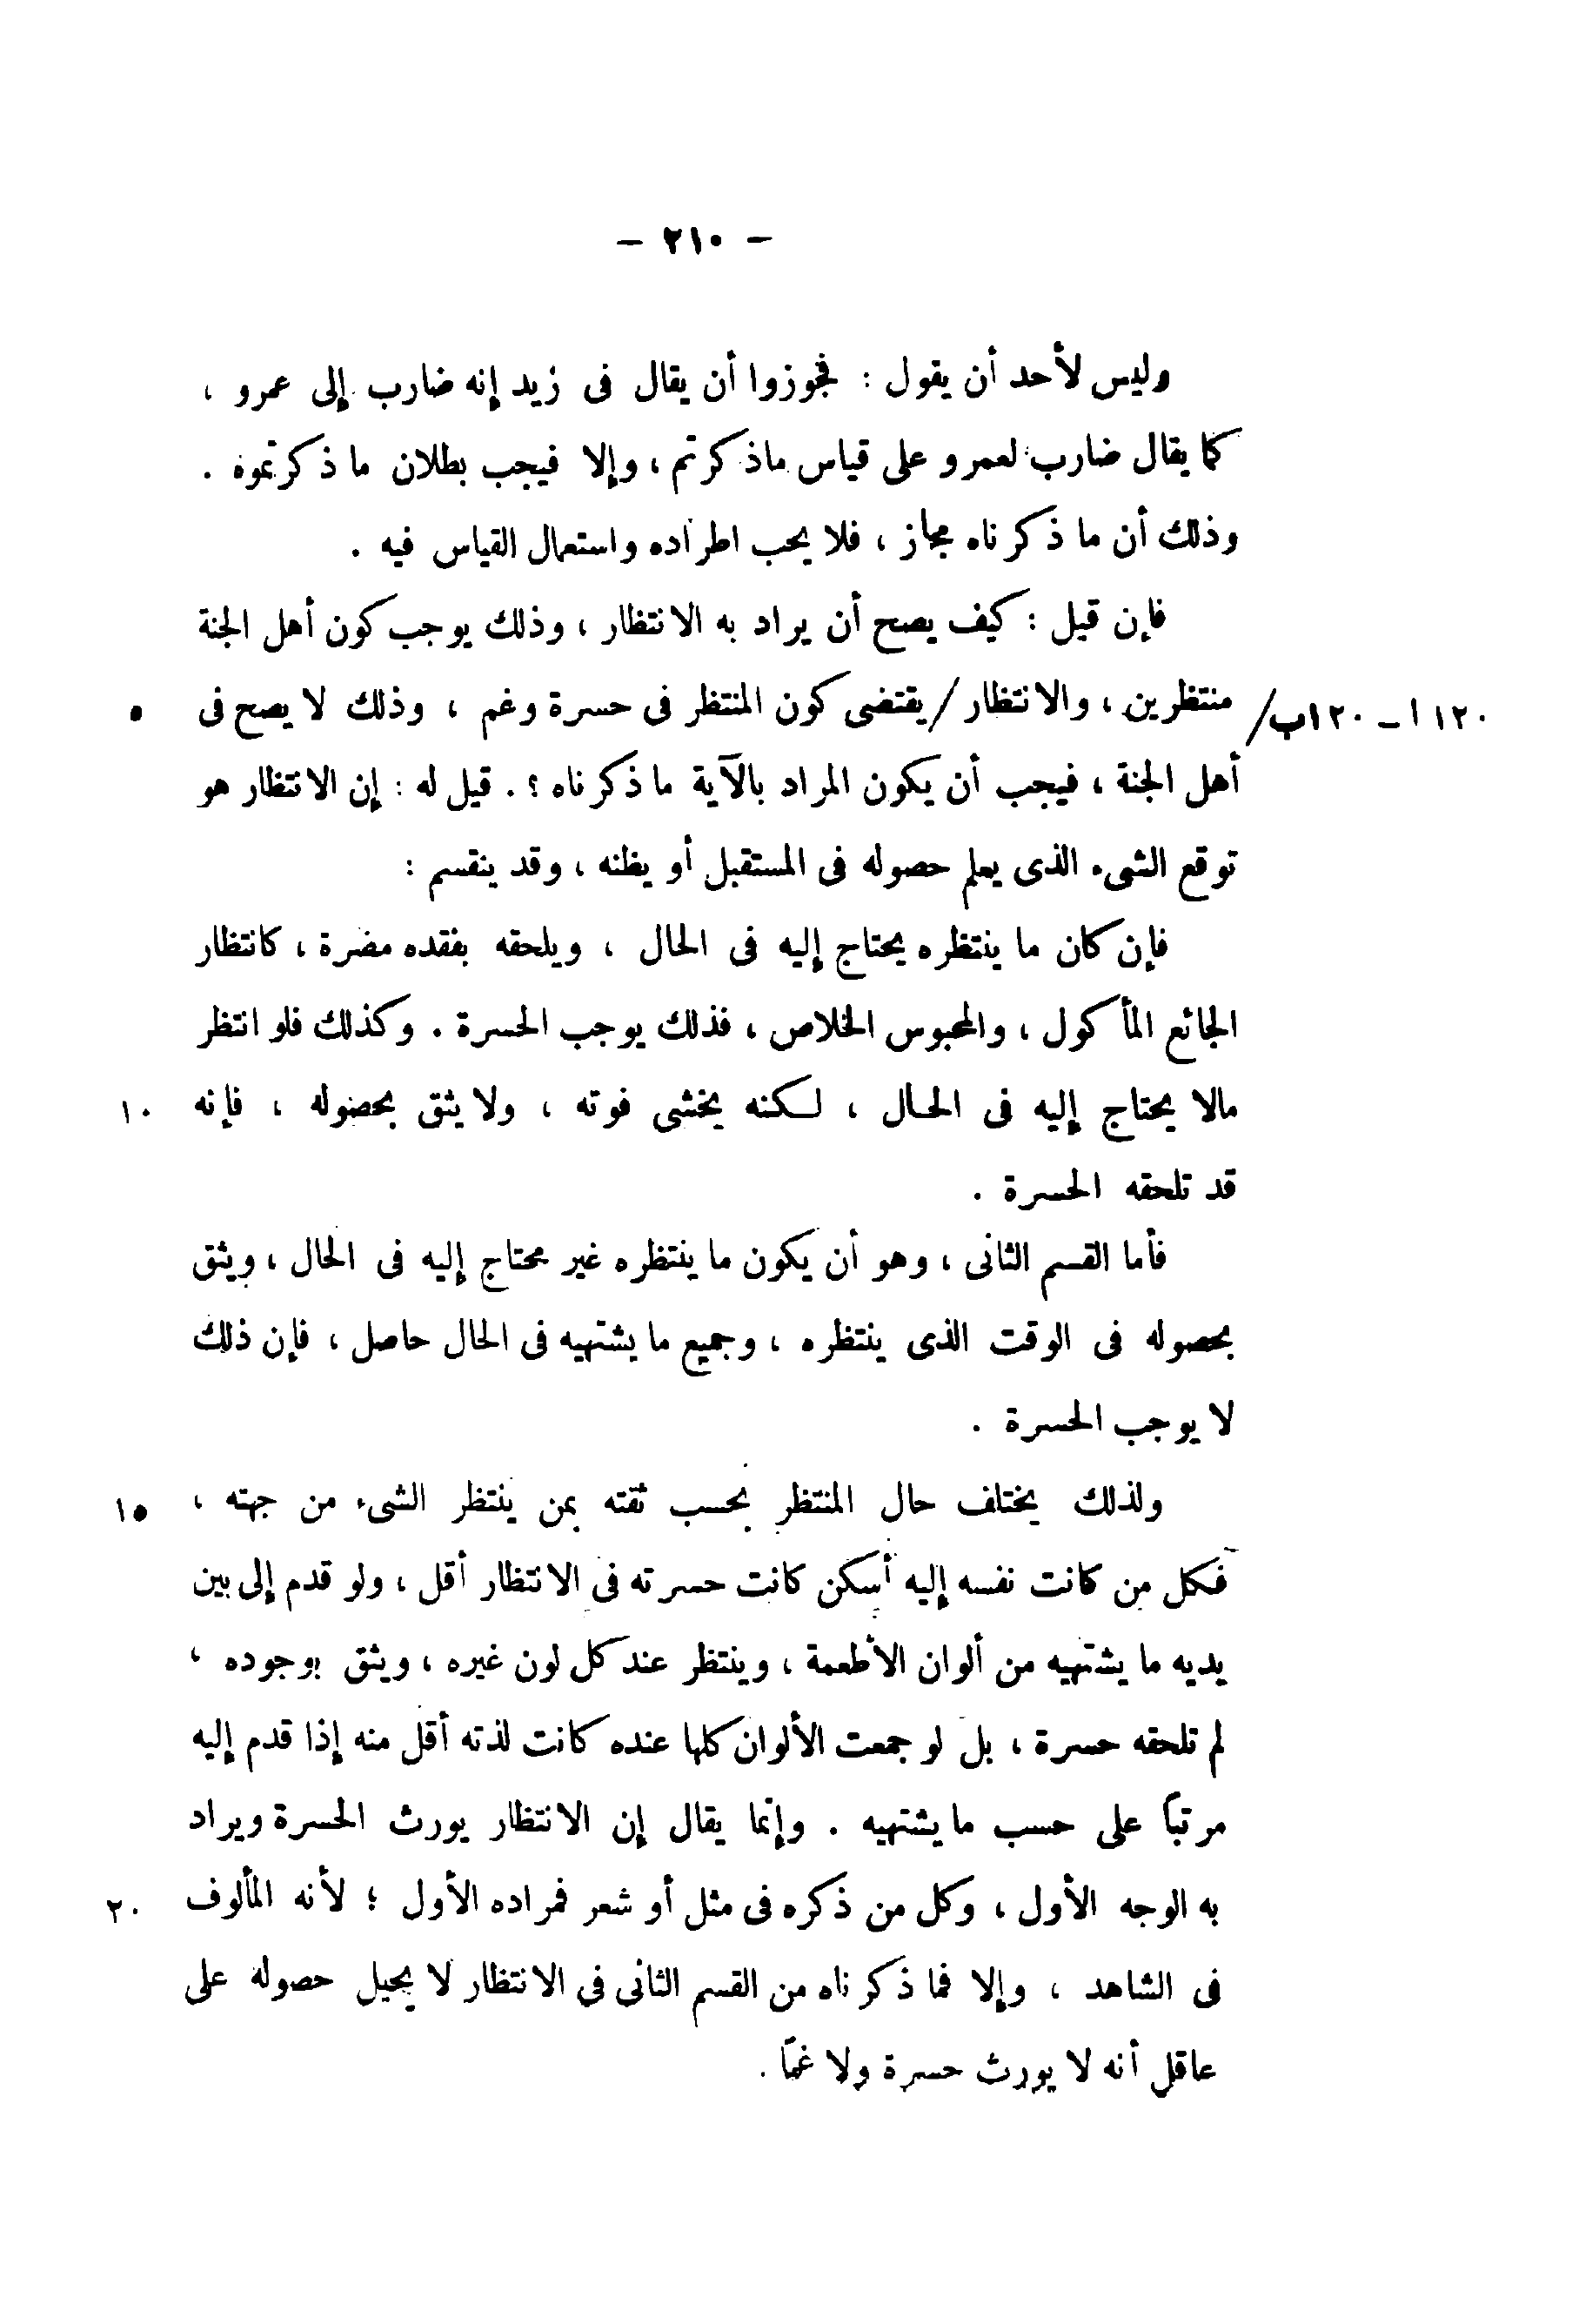 – ٢١٠ –
وليس لأحد أن يقول : فجوزوا أن يقال فى زيد إنه ضارب إلى عمرو ،
كما يقال ضارب لعمرو على قياس ماذكرتم ، وإلا فيجب بطلان ما ذكرتموه .
وذلك أن ما ذكرناه مجاز ، فلا يجب اطراده واستعمال القياس فيه .
فإن قيل : كيف يصح أن يراد به الانتظار ، وذلك يوجب كون أهل الجنة
١٢٠ ا – ١٢٠ب/ منتظرين ، والانتظار / يقتضى كون المنتظر فى حسرة وغم ، وذلك لا يصح فى ٥
أهل الجنة ، فيجب أن يكون المراد بالآية ما ذكرناه ؟ . قيل له : إن الانتظار هو
توقع الشىء الذى يعلم حصوله فى المستقبل أو يظنه ، وقد ينقسم :
فإن كان ما ينتظره يحتاج إليه فى الحال ، ويلحقه بفقده مضرة ، كانتظار
الجائع المأكول ، والمحبوس الخلاص ، فذلك يوجب الحسرة . وكذلك فلو انتظر
مالا يحتاج إليه فى الحال ، لكنه يخشى فوته ، ولا يثق بحصوله ، فإنه ١٠
قد تلحقه الحسرة .
فأما القسم الثانى ، وهو أن يكون ما ينتظره غير محتاج إليه فى الحال ، ويثق
بحصوله فى الوقت الذى ينتظره ، وجميع ما يشتهيه فى الحال حاصل ، فإن ذلك
لا يوجب الحسرة .
ولذلك يختلف حال المنتظر بحسب ثقته بمن ينتظر الشىء من جهته ، ١٥
فكل من كانت نفسه إليه أسكن كانت حسرته فى الانتظار أقل ، ولو قدم إلى بين
يديه ما يشتهيه من ألوان الأطعمة ، وينتظر عند كل لون غيره ، ويثق بوجوده ،
لم تلحقه حسرة ، بل لو جمعت الألوان كلها عنده كانت لذته أقل منه إذا قدم إليه
مرتبًا على حسب ما يشتهيه . وإنما يقال إن الانتظار يورث الحسرة ويراد
به الوجه الأول ، وكل من ذكره فى مثل أو شعر فمراده الأول ؛ لأنه المألوف ٢٠
فى الشاهد ، وإلا فما ذكرناه من القسم الثانى فى الانتظار لا يحيل حصوله على
عاقل أنه لا يورث حسرة ولا غمًا .